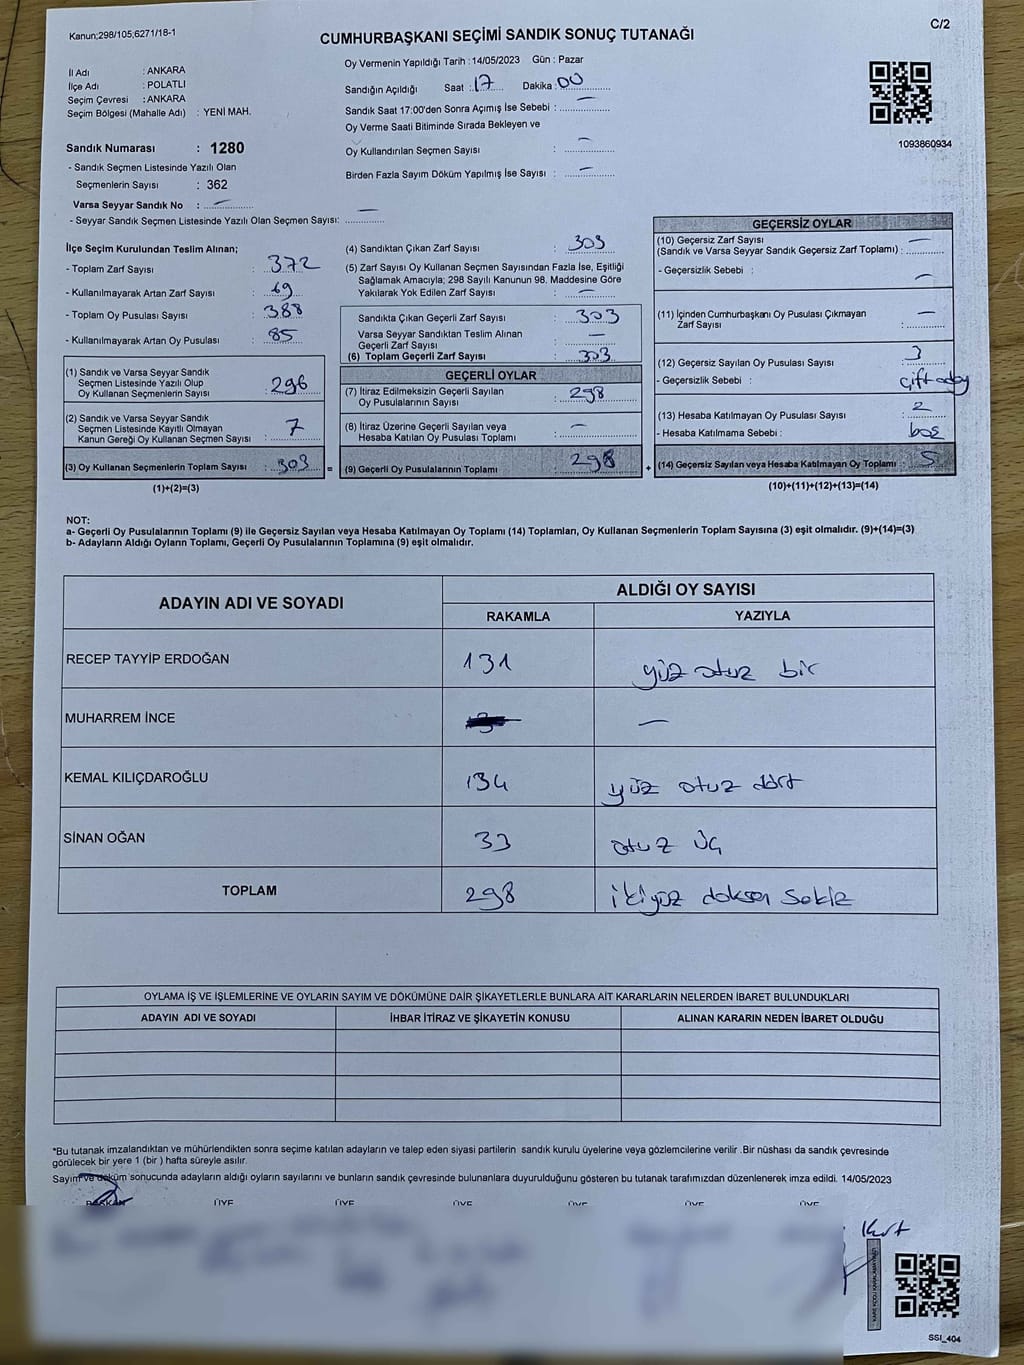 Kanun;298/105;6271/18-1
C/2
CUMHURBAŞKANI SEÇİMİ SANDIK SONUÇ TUTANAĞI
İl Adı : ANKARA
İlçe Adı : POLATLI
Seçim Çevresi : ANKARA
Seçim Bölgesi (Mahalle Adı) : YENİ MAH.
Oy Vermenin Yapıldığı Tarih : 14/05/2023 Gün : Pazar
Sandığın Açıldığı Saat : 17 Dakika : 00
Sandık Saat 17:00'den Sonra Açımış İse Sebebi : —
Oy Verme Saati Bitiminde Sırada Bekleyen ve
Oy Kullandırılan Seçmen Sayısı : —
Birden Fazla Sayım Döküm Yapılmış İse Sayısı : —
1093860934
Sandık Numarası : 1280
- Sandık Seçmen Listesinde Yazılı Olan
Seçmenlerin Sayısı : 362
Varsa Seyyar Sandık No : —
- Seyyar Sandık Seçmen Listesinde Yazılı Olan Seçmen Sayısı: —
İlçe Seçim Kurulundan Teslim Alınan;
- Toplam Zarf Sayısı : 372
- Kullanılmayarak Artan Zarf Sayısı : 69
- Toplam Oy Pusulası Sayısı : 388
- Kullanılmayarak Artan Oy Pusulası : 85
(1) Sandık ve Varsa Seyyar Sandık
Seçmen Listesinde Yazılı Olup
Oy Kullanan Seçmenlerin Sayısı : 296
(2) Sandık ve Varsa Seyyar Sandık
Seçmen Listesinde Kayıtlı Olmayan
Kanun Gereği Oy Kullanan Seçmen Sayısı : 7
(3) Oy Kullanan Seçmenlerin Toplam Sayısı : 303
(1)+(2)=(3)
(4) Sandıktan Çıkan Zarf Sayısı : 303
(5) Zarf Sayısı Oy Kullanan Seçmen Sayısından Fazla İse, Eşitliği
Sağlamak Amacıyla; 298 Sayılı Kanunun 98. Maddesine Göre
Yakılarak Yok Edilen Zarf Sayısı : —
Sandıkta Çıkan Geçerli Zarf Sayısı : 303
Varsa Seyyar Sandıktan Teslim Alınan
Geçerli Zarf Sayısı : —
(6) Toplam Geçerli Zarf Sayısı : 303
GEÇERLİ OYLAR
(7) İtiraz Edilmeksizin Geçerli Sayılan
Oy Pusulalarının Sayısı : 298
(8) İtiraz Üzerine Geçerli Sayılan veya
Hesaba Katılan Oy Pusulası Toplamı : —
= (9) Geçerli Oy Pusulalarının Toplamı : 298 +
GEÇERSİZ OYLAR
(10) Geçersiz Zarf Sayısı
(Sandık ve Varsa Seyyar Sandık Geçersiz Zarf Toplamı) : —
- Geçersizlik Sebebi : —
(11) İçinden Cumhurbaşkanı Oy Pusulası Çıkmayan
Zarf Sayısı : —
(12) Geçersiz Sayılan Oy Pusulası Sayısı : 3
- Geçersizlik Sebebi : çift aday
(13) Hesaba Katılmayan Oy Pusulası Sayısı : 2
- Hesaba Katılmama Sebebi : boş
(14) Geçersiz Sayılan veya Hesaba Katılmayan Oy Toplamı : 5
(10)+(11)+(12)+(13)=(14)
NOT:
a- Geçerli Oy Pusulalarının Toplamı (9) ile Geçersiz Sayılan veya Hesaba Katılmayan Oy Toplamı (14) Toplamları, Oy Kullanan Seçmenlerin Toplam Sayısına (3) eşit olmalıdır. (9)+(14)=(3)
b- Adayların Aldığı Oyların Toplamı, Geçerli Oy Pusulalarının Toplamına (9) eşit olmalıdır.
ADAYIN ADI VE SOYADI
ALDIĞI OY SAYISI
RAKAMLA YAZIYLA
RECEP TAYYİP ERDOĞAN 131 yüz otuz bir
MUHARREM İNCE —
KEMAL KILIÇDAROĞLU 134 yüz otuz dört
SİNAN OĞAN 33 otuz üç
TOPLAM 298 ikiyüz doksan sekiz
OYLAMA İŞ VE İŞLEMLERİNE VE OYLARIN SAYIM VE DÖKÜMÜNE DAİR ŞİKAYETLERLE BUNLARA AİT KARARLARIN NELERDEN İBARET BULUNDUKLARI
ADAYIN ADI VE SOYADI İHBAR İTİRAZ VE ŞİKAYETİN KONUSU ALINAN KARARIN NEDEN İBARET OLDUĞU
*Bu tutanak imzalandıktan ve mühürlendikten sonra seçime katılan adayların ve talep eden siyasi partilerin sandık kurulu üyelerine veya gözlemcilerine verilir .Bir nüshası da sandık çevresinde
görülecek bir yere 1 (bir ) hafta süreyle asılır.
Sayım ve döküm sonucunda adayların aldığı oyların sayılarını ve bunların sandık çevresinde bulunanlara duyurulduğunu gösteren bu tutanak tarafımızdan düzenlenerek imza edildi. 14/05/2023
BAŞKAN ÜYE ÜYE ÜYE ÜYE ÜYE ÜYE
SSI_404